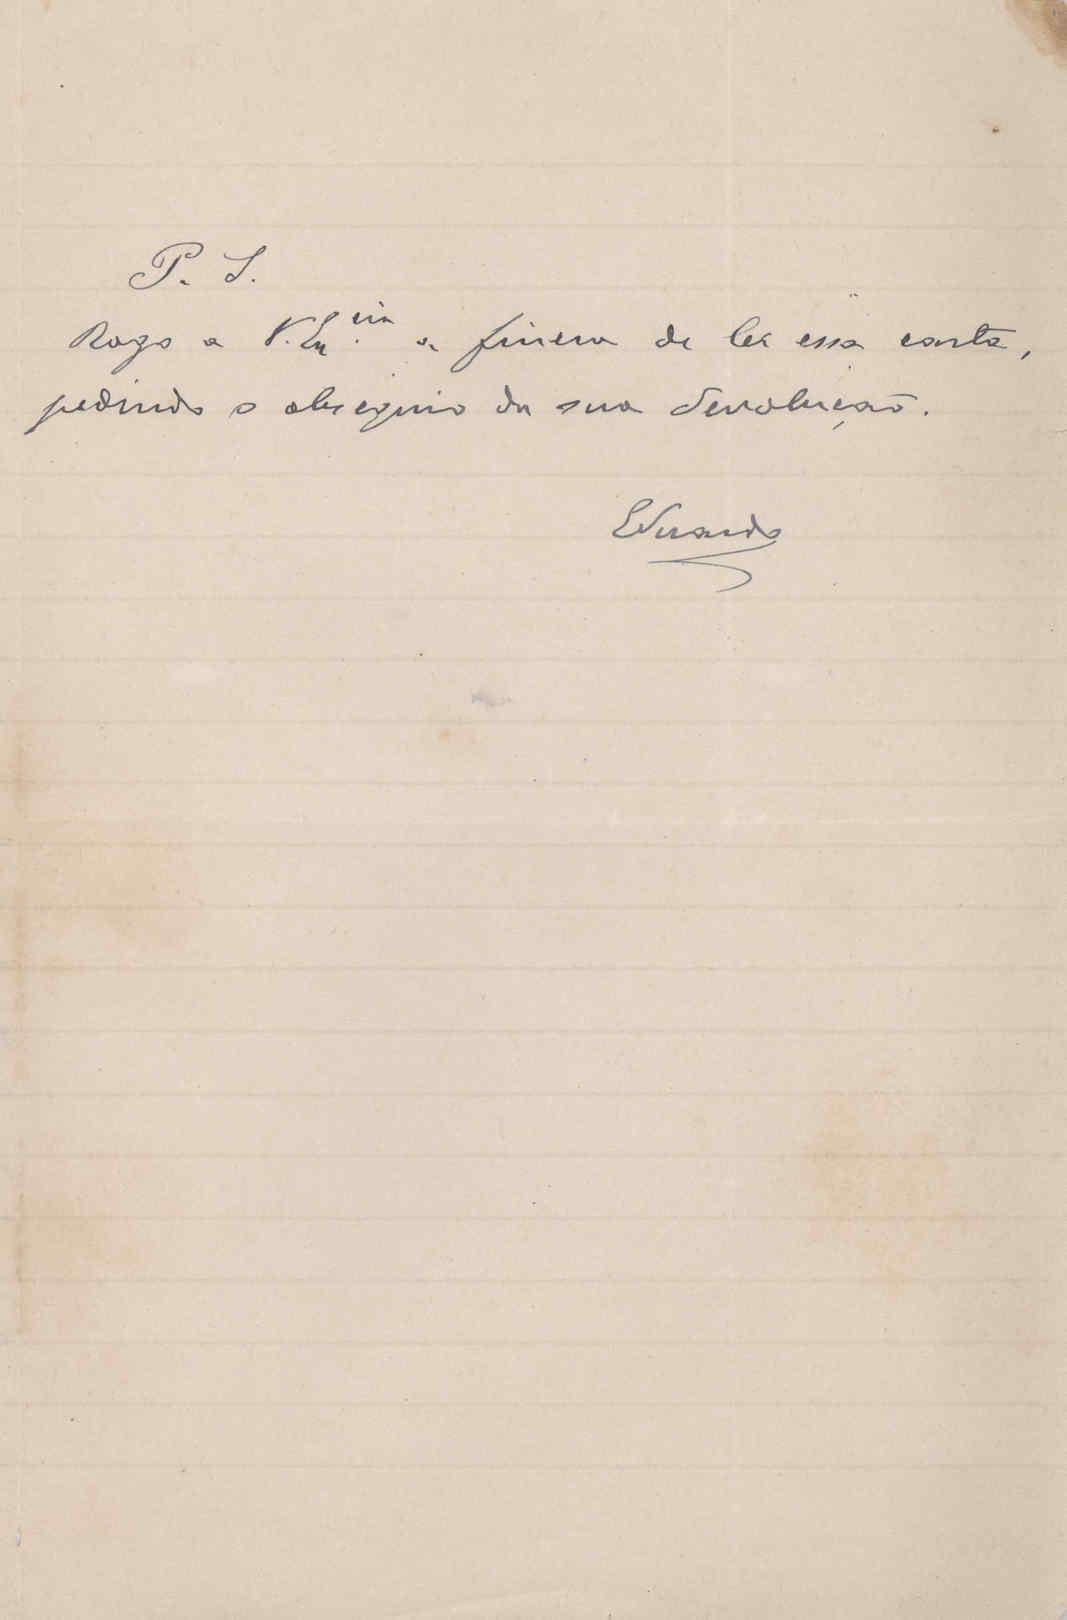 P. S.
Rogo a V. Ex.cia a fineza de ler essa carta,
pedindo o obsequio da sua devolução.